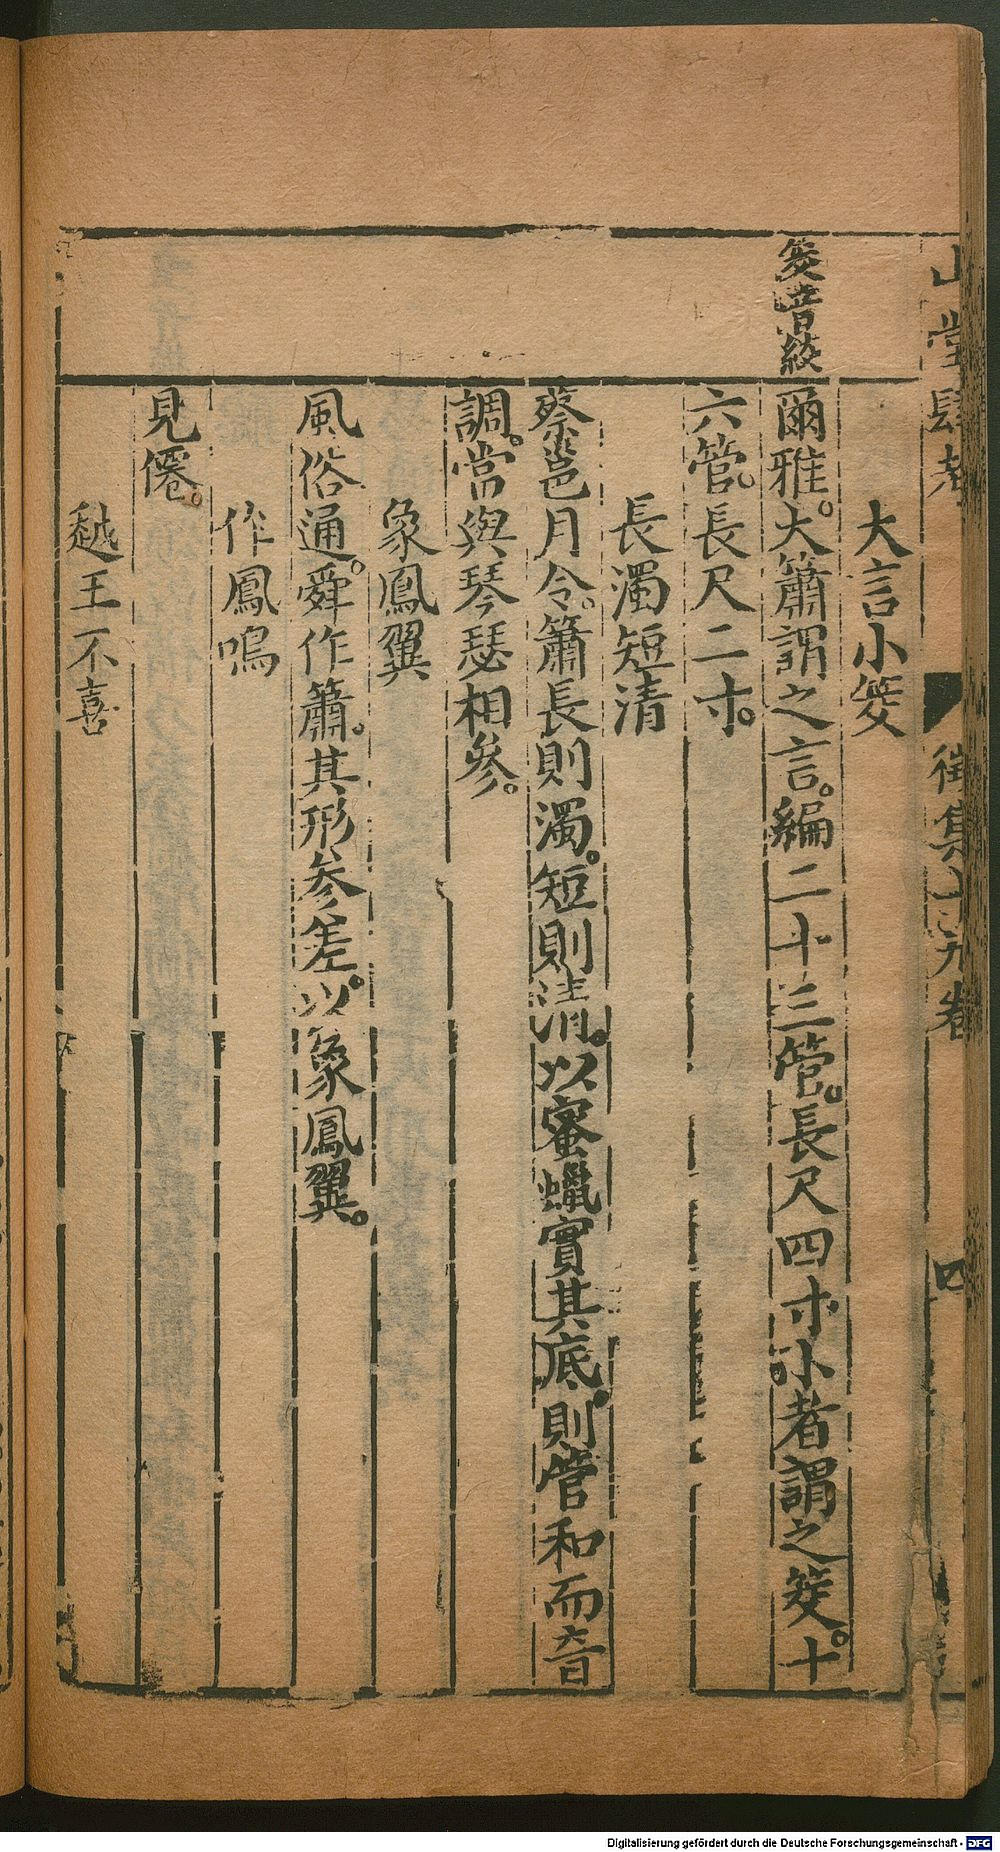 山堂肆考 徵集十九卷 四
大言小筊
筊音絞
爾雅。大簫謂之言。編二十三管。長尺四寸。小者謂之筊。十
六管。長尺二寸。
長濁短清
蔡邕月令。簫長則濁。短則清。以蜜蠟實其底。則管和而音
調。當與琴瑟相參。
象鳳翼
風俗通。舜作簫。其形参差。以象鳳翼。
作鳳鳴
見僊。
越王不喜
Digitalisierung gefördert durch die Deutsche Forschungsgemeinschaft - DFG